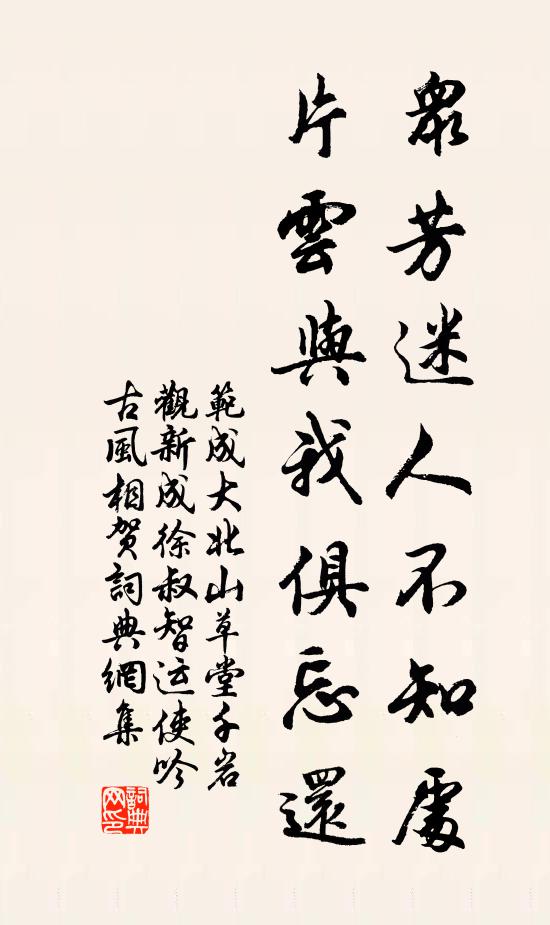 眾芳迷人不知處
片雲與我俱忘還
範成大北山草堂千岩
觀新成徐叔智运使吟
古風相贺詞典網集
詞典
网印